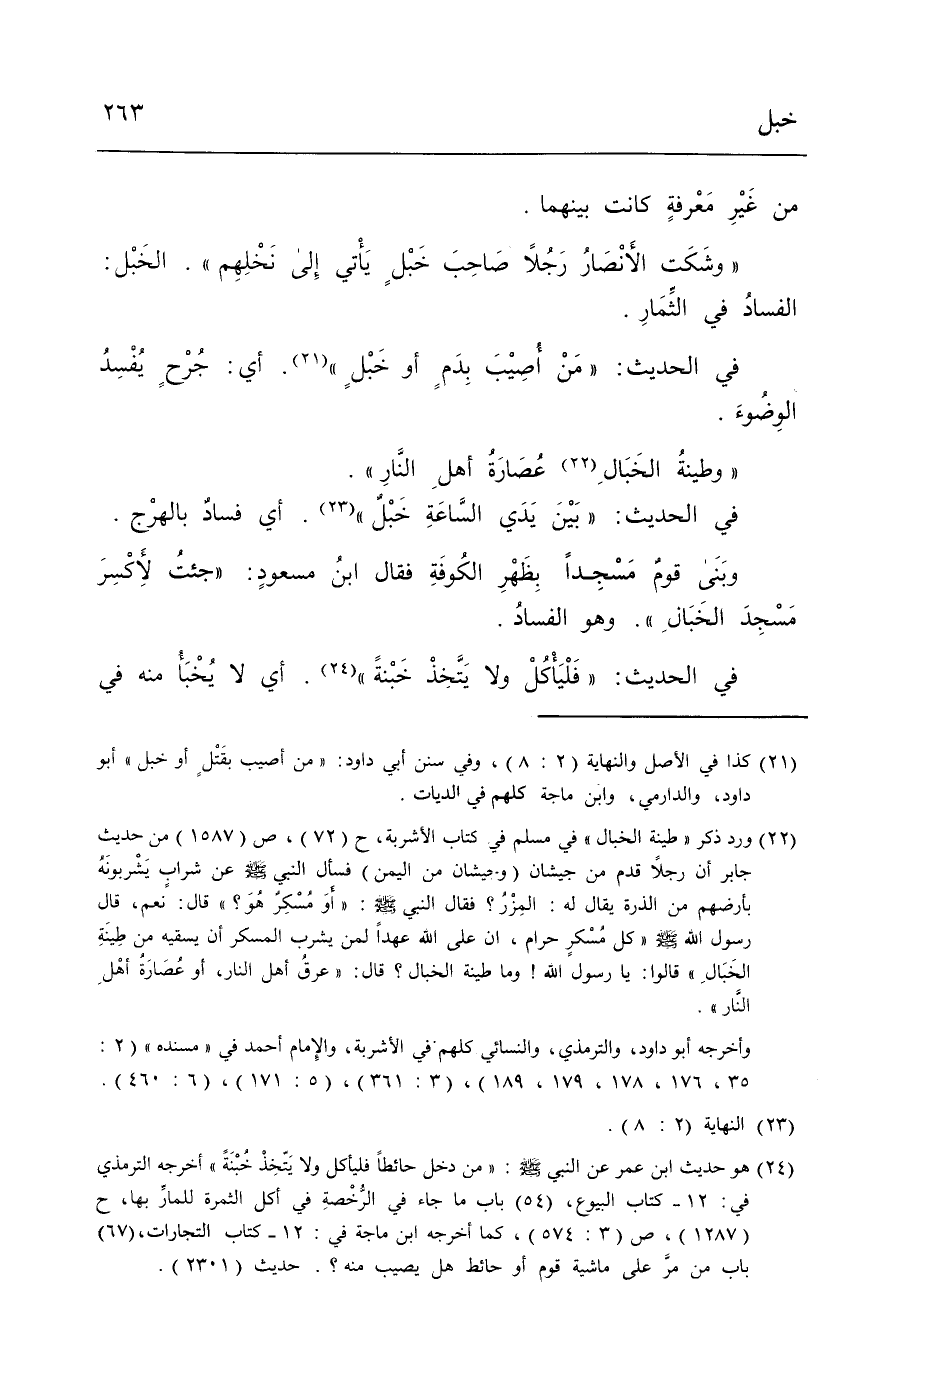 خبل
٢٦٣
من غَيْرِ مَعْرفةٍ كانت بينهما .
« وشَكَت الأَنْصَارُ رَجُلًا صَاحِبَ خَبْلٍ يَأْتي إِلىٰ نَخْلِهِم » . الخَبْل :
الفسادُ في الثِّمَارِ .
في الحديث : « مَنْ أُصِيْبَ بِدَمٍ أو خَبْلٍ »(٢١). أي : جُرْحٍ يُفْسِدُ
الوِضُوءَ .
« وطينةُ الخَبَالِ(٢٢) عُصَارَةُ أهلِ النَّارِ » .
في الحديث : « بَيْنَ يَدَي السَّاعَةِ خَبْلٌ »(٢٣) . أي فسادٌ بالهرْج .
وبَنَىٰ قومٌ مَسْجِداً بِظَهْرِ الكُوفَةِ فقال ابنُ مسعودٍ : «جئتُ لَأِكْسِرَ
مَسْجِدَ الخَبَالِ » . وهو الفسادُ .
في الحديث : « فَلْيَأْكُلْ ولا يَتَّخِذْ خَبْنةً »(٢٤) . أي لا يُخْبَأُ منه في
(٢١) كذا في الأصل والنهاية ( ٢ : ٨ ) ، وفي سنن أبي داود : « من أصيب بقَتْلٍ أو خبل » أبو
داود، والدارمي، وابن ماجة كلهم في الديات .
(٢٢) ورد ذكر « طينة الخبال » في مسلم في كتاب الأشربة، ح ( ٧٢ ) ، ص ( ١٥٨٧ ) من حديث
جابر أن رجلًا قدم من جيشان ( وجيشان من اليمن ) فسأل النبي ﷺ عن شرابٍ يَشْربونَهُ
بأرضهم من الذرة يقال له : المِزْرُ ؟ فقال النبي ﷺ : « أَوَ مُسْكِرٌ هُوَ ؟ » قال : نعم، قال
رسول الله ﷺ « كل مُسْكرٍ حرام ، ان على الله عهداً لمن يشرب المسكر أن يسقيه من طِينَةِ
الخَبَالِ » قالوا : يا رسول الله ! وما طينة الخبال ؟ قال : « عرقُ أهل النار، أو عُصَارَةُ أهْلِ
النَّار » .
وأخرجه أبو داود، والترمذي، والنسائي كلهم في الأشربة، والإمام أحمد في « مسنده » ( ٢ :
٣٥ ، ١٧٦ ، ١٧٨ ، ١٧٩ ، ١٨٩ ) ، ( ٣ : ٣٦١ ) ، ( ٥ : ١٧١ ) ، ( ٦ : ٤٦٠ ) .
(٢٣) النهاية (٢ : ٨ ) .
(٢٤) هو حديث ابن عمر عن النبي ﷺ : « من دخل حائطاً فليأكل ولا يَتّخِذْ خُبْنَةً » أخرجه الترمذي
في : ١٢ ـ كتاب البيوع، (٥٤) باب ما جاء في الرُّخْصةِ في أكل الثمرة للمارِّ بها، ح
( ١٢٨٧ ) ، ص ( ٣ : ٥٧٤ ) ، كما أخرجه ابن ماجة في : ١٢ ـ كتاب التجارات، (٦٧)
باب من مرَّ على ماشية قوم أو حائط هل يصيب منه ؟ . حديث ( ٢٣٠١ ) .